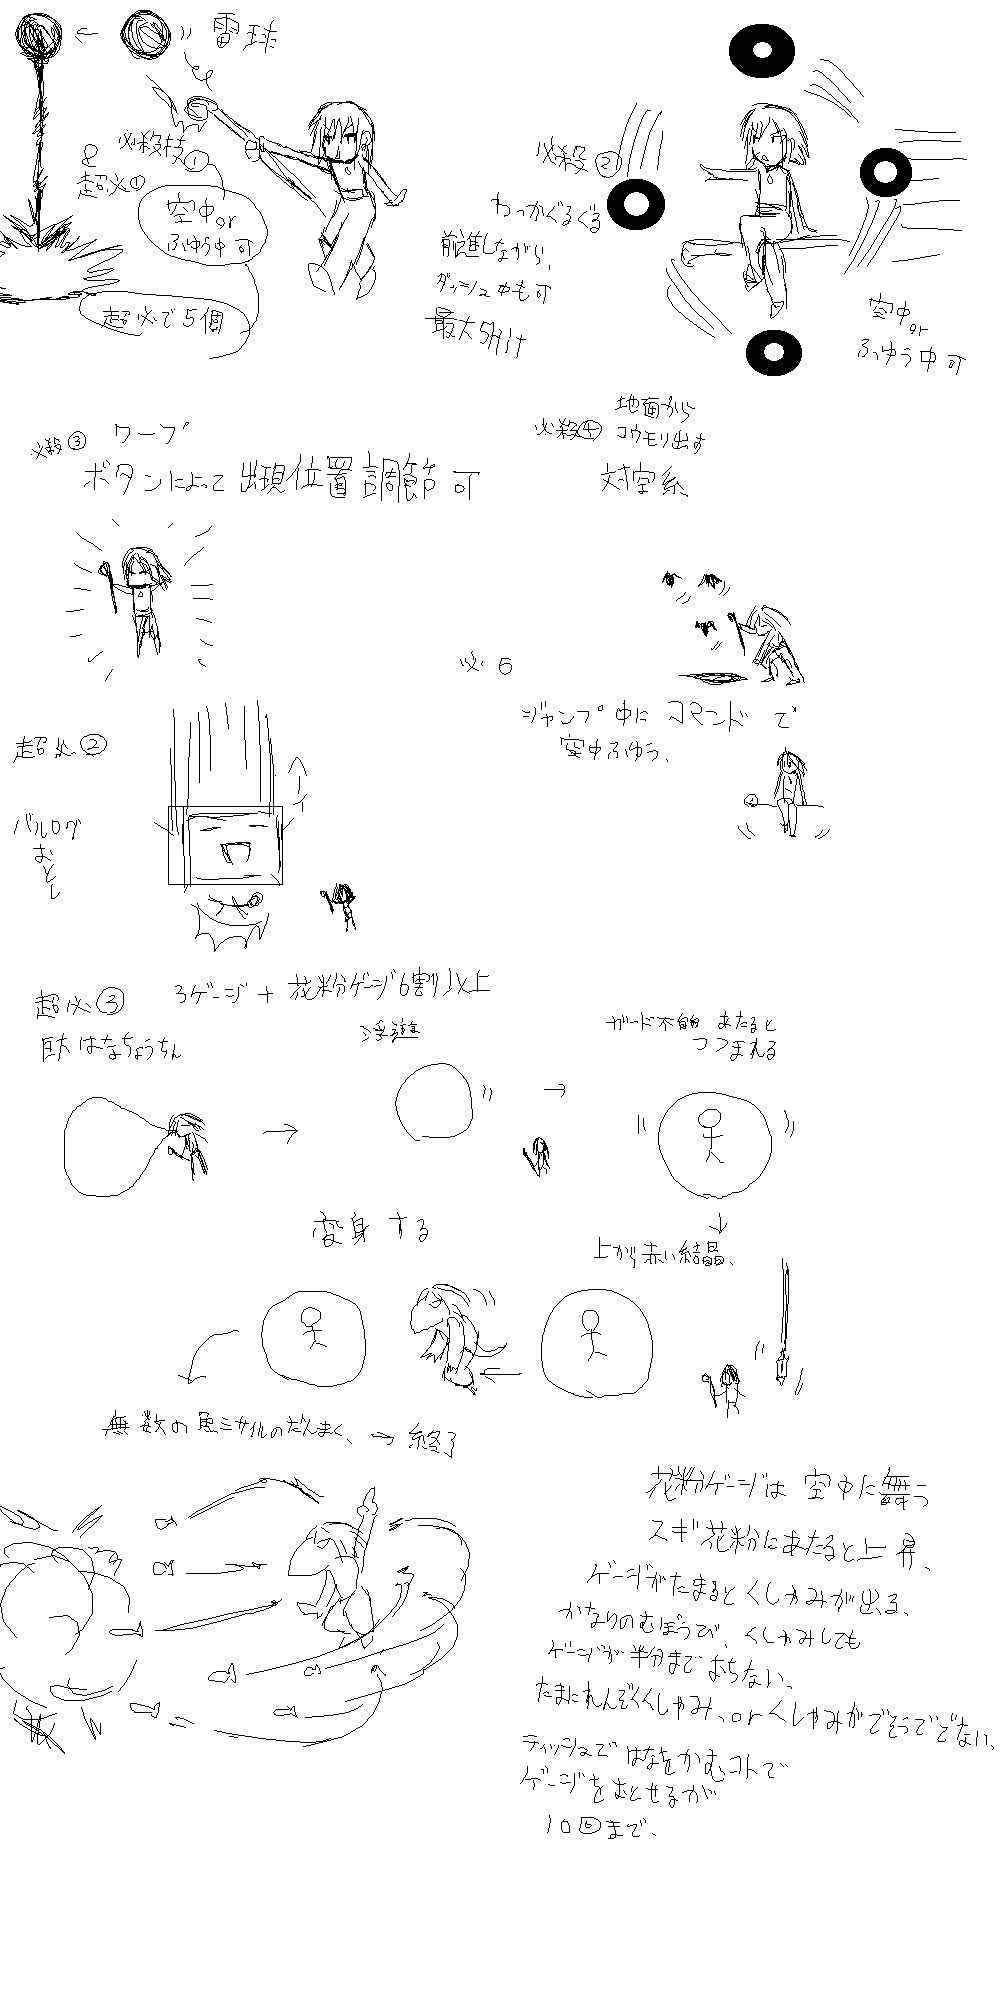 雷球
必殺技①
&
超必①
空中or
ふゆう中可
超必で5個
必殺②
わっかぐるぐる
前進しながら、
ダッシュ中も可
最大5HIT
空中or
ふゆう中可
必殺③ ワープ
ボタンによって出現位置調節可
必殺④ 地面から
コウモリ出す
対空系
必5
ジャンプ中にコマンドで
空中ふゆう、
超必②
バルログ
おとし
超必③ 3ゲージ+花粉ゲージ6割以上
巨大はなちょうちん
浮遊
ガード不能 あたると
つつまれる
上から赤い結晶、
変身する
無数の魚ミサイルのだんまく、→終了
花粉ゲージは空中に舞う
スギ花粉にあたると上昇、
ゲージがたまるとくしゃみが出る、
かなりのむぼうび、くしゃみしても
ゲージが半分までおちない、
たまにれんぞくくしゃみ、orくしゃみがでそうででない、
ティッシュではなをかむコトで
ゲージをおとせるが
10回まで、